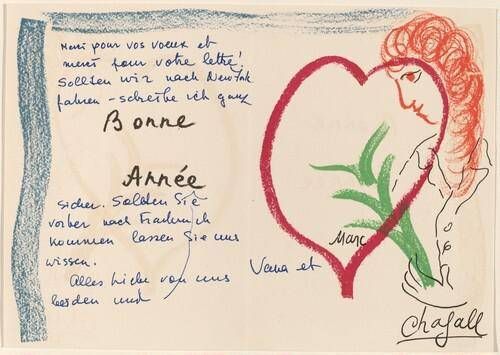 Merci pour vos voeux et
merci pour votre lettre!
Sollten wir nach New York
fahren – schreibe ich ganz
Bonne
Année
sicher. Sollten Sie
vorher nach Frankreich
kommen lassen Sie uns
wissen.
Alles Liebe von uns
beiden und
Vava et
Marc
Chagall